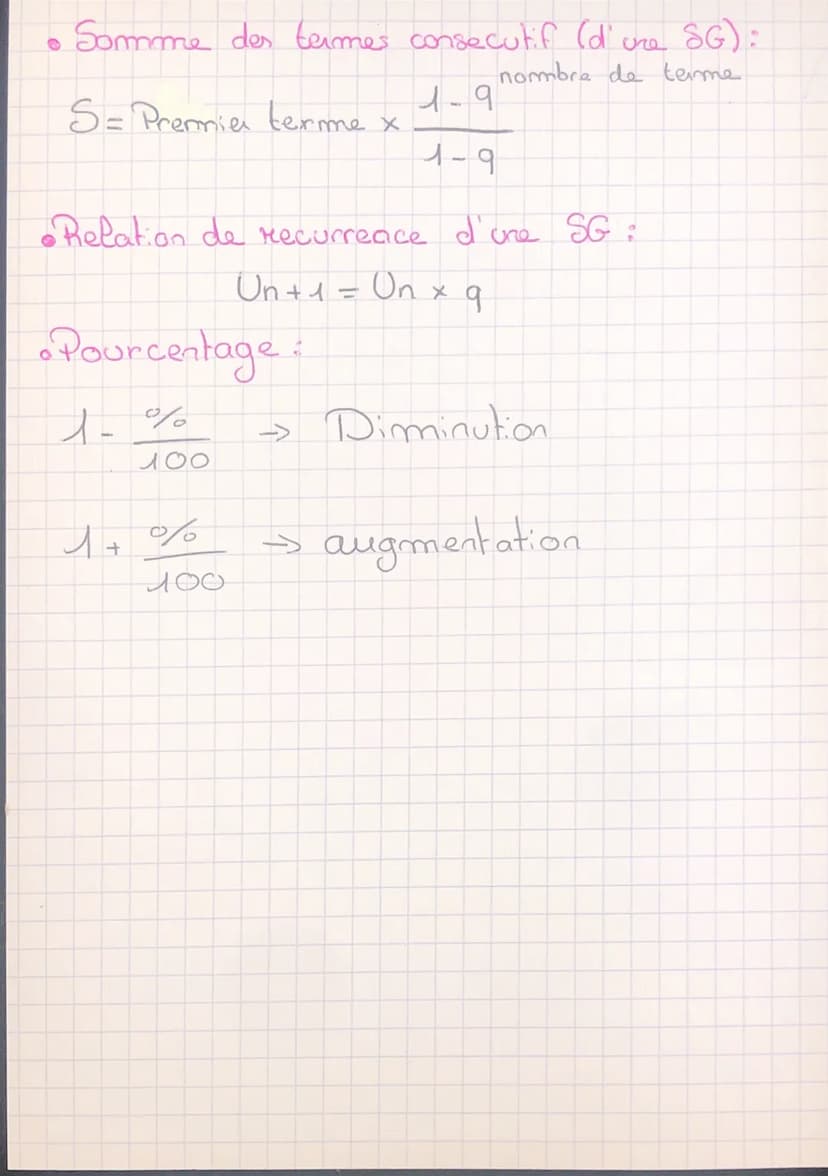 • Somme des termes consecutif (d'une SG) :
S = Premier terme × (1 - q^nombre de terme) / (1 - q)
• Relation de recurrence d'une SG :
Un+1 = Un × q
• Pourcentage :
1 - %/100 → Diminution
1 + %/100 → augmentation